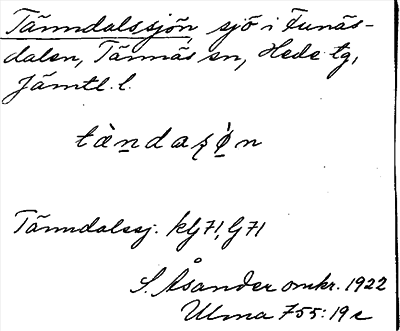 Tänndalssjön sjö i Funäs-
dalen, Tännäs sn, Hede tg,
Jämtl. l.
tändasøn
Tänndalssj. kG71, G71
S. Åsander omkr. 1922
Ulma 755:19c